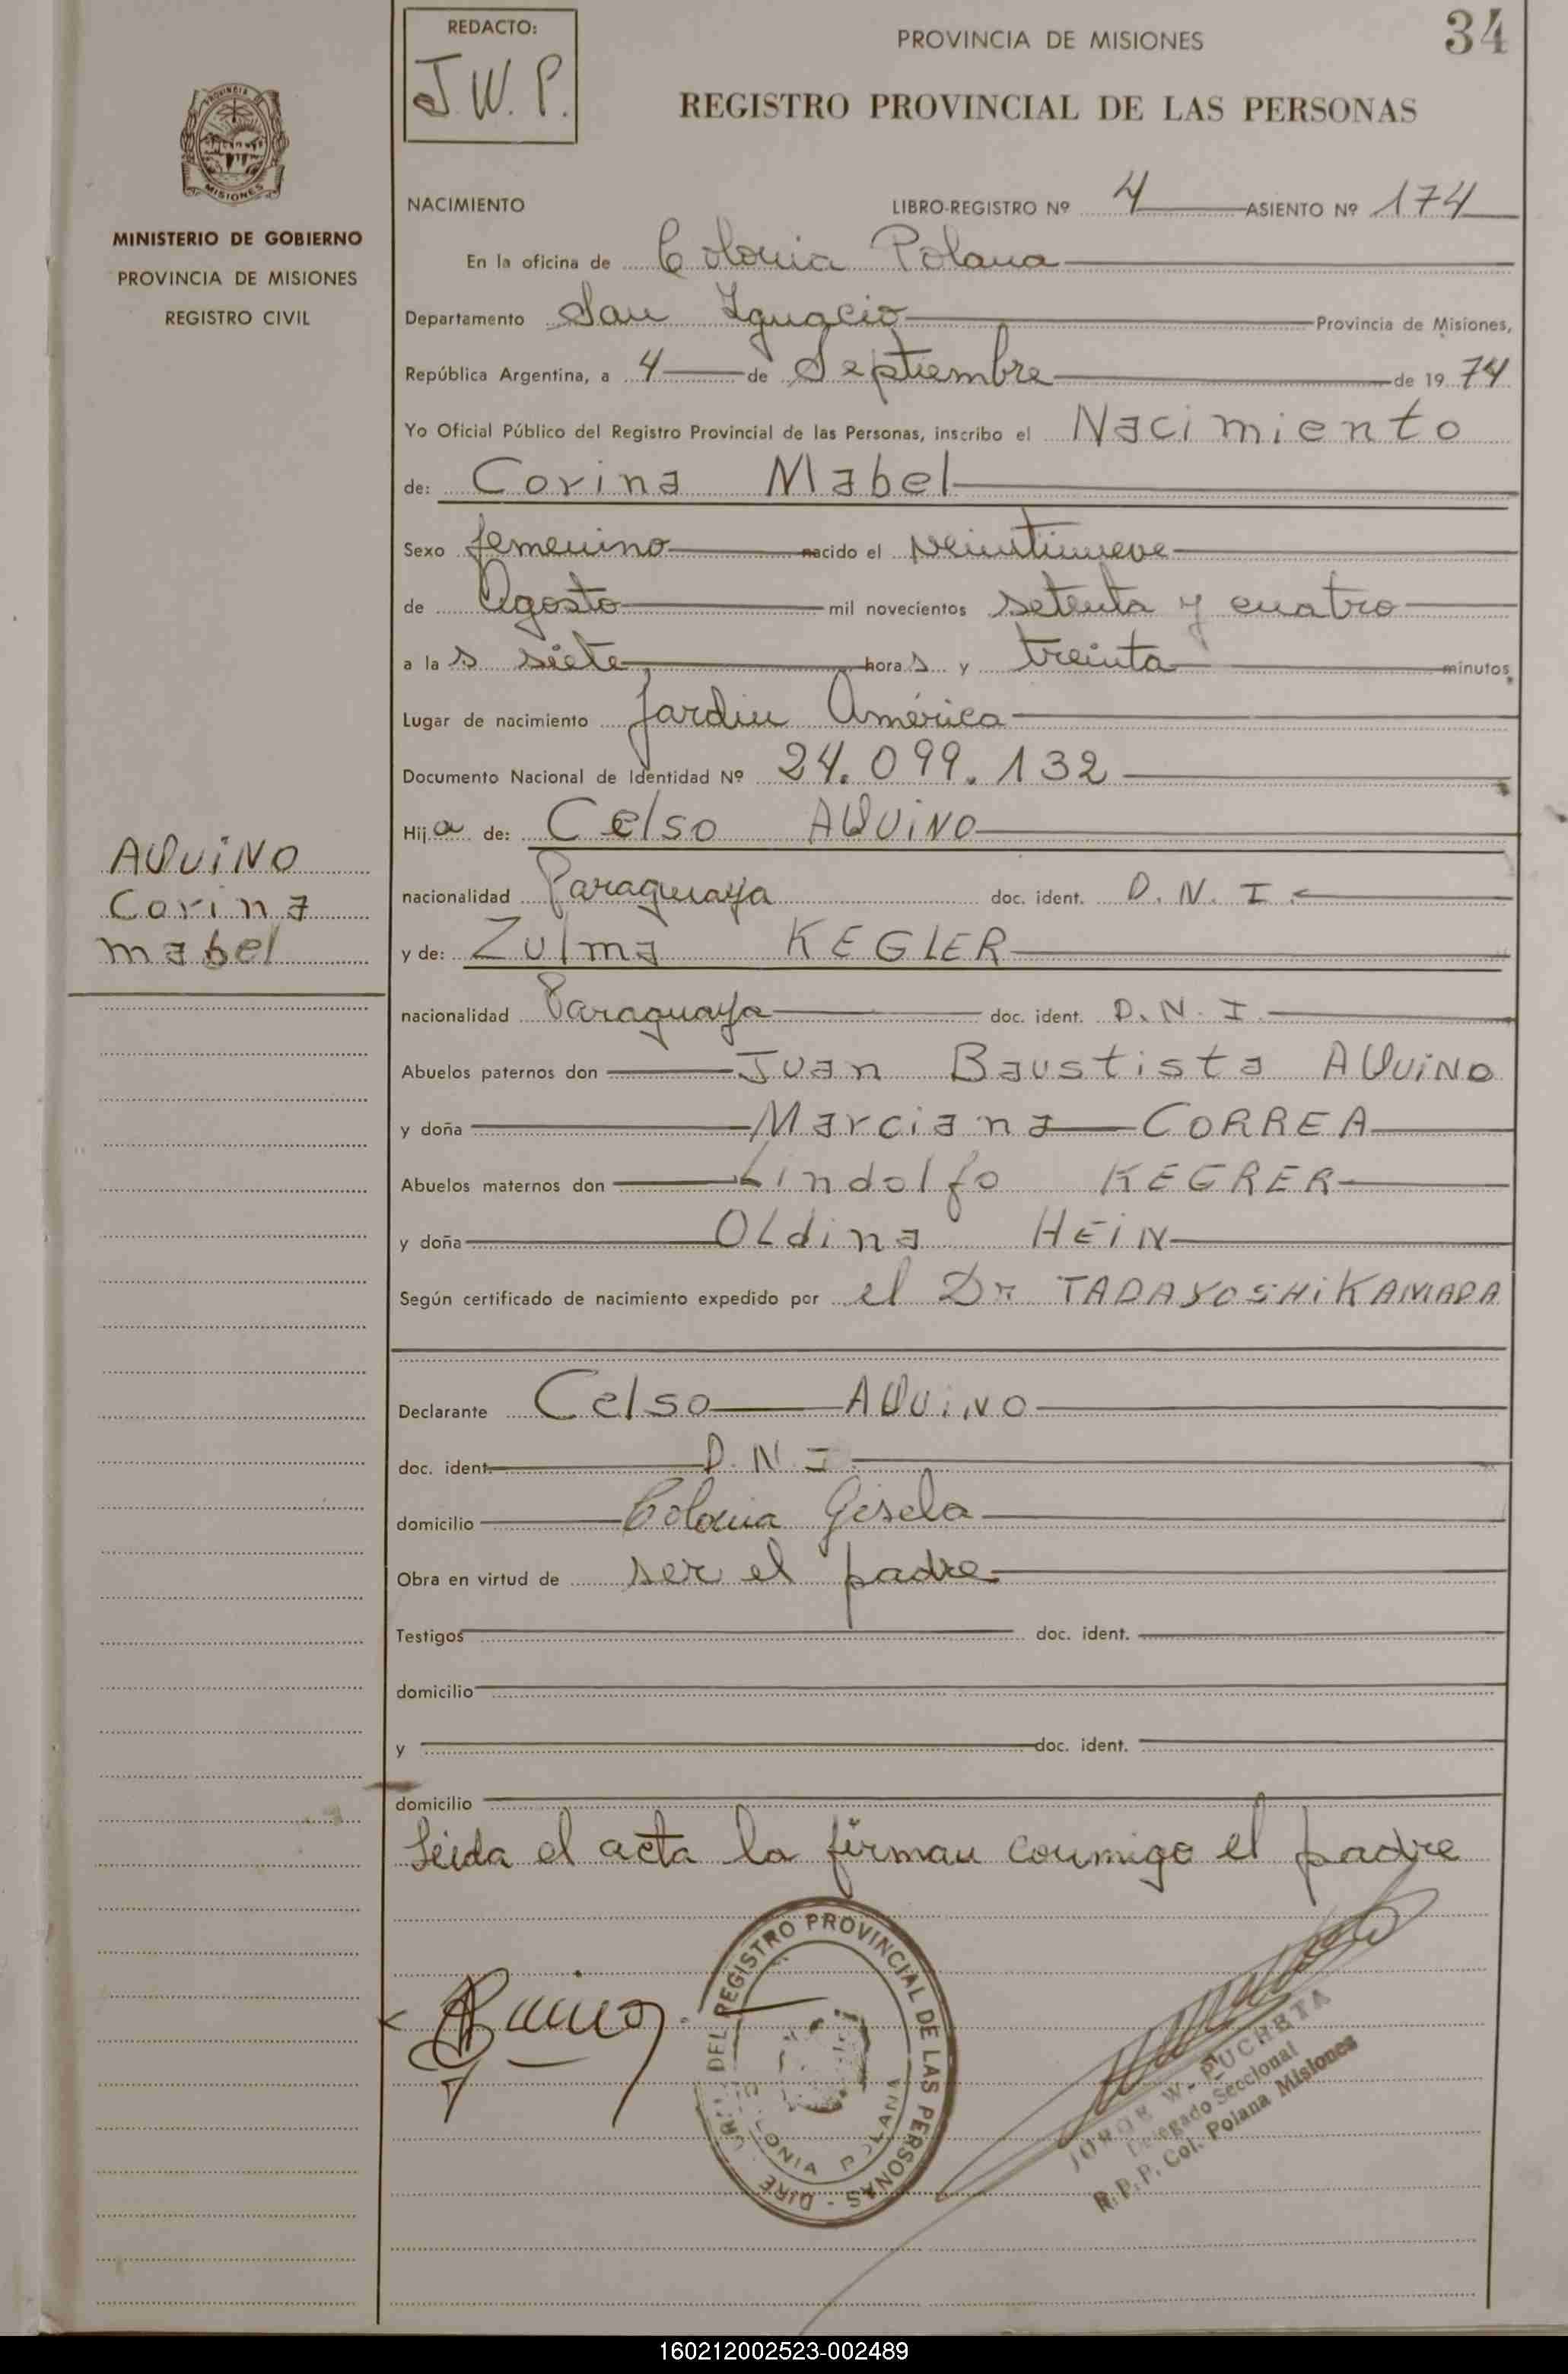 REDACTO:
J.W.P.
PROVINCIA DE MISIONES
34
REGISTRO PROVINCIAL DE LAS PERSONAS
MISIONES
MINISTERIO DE GOBIERNO
PROVINCIA DE MISIONES
REGISTRO CIVIL
NACIMIENTO LIBRO-REGISTRO Nº 4 ASIENTO Nº 174
En la oficina de Colonia Polana
Departamento San Ignacio Provincia de Misiones,
República Argentina, a 4 de Septiembre de 1974
Yo Oficial Público del Registro Provincial de las Personas, inscribo el Nacimiento
de: Corina Mabel
Sexo femenino nacido el veintinueve
de Agosto mil novecientos setenta y cuatro
a las siete horas y treinta minutos
Lugar de nacimiento Jardin América
Documento Nacional de Identidad Nº 24.099.132
Hija de: Celso AQUiNO
nacionalidad Paraguaya doc. ident. D.N.I.
y de: Zulma KEGLER
nacionalidad Paraguaya doc. ident. D.N.I.
Abuelos paternos don Juan Baustista AQUiNO
y doña Marciana CORREA
Abuelos maternos don Lindolfo KEGRER
y doña OLdina HEiN
Según certificado de nacimiento expedido por el Dr TADAYOSHi KAMADA
AQUiNO
Corina
mabel
Declarante Celso AQUiNO
doc. ident. D.N.I.
domicilio Colonia Gisela
Obra en virtud de ser el padre
Testigos doc. ident.
domicilio
y doc. ident.
domicilio
Leida el acta la firman conmigo el padre
DEL REGISTRO PROVINCIAL DE LAS PERSONAS - DIRE
COLONIA POLANA
JORGE W. PUCHETA
Delegado Seccional
R.P.P. Col. Polana Misiones
160212002523-002489